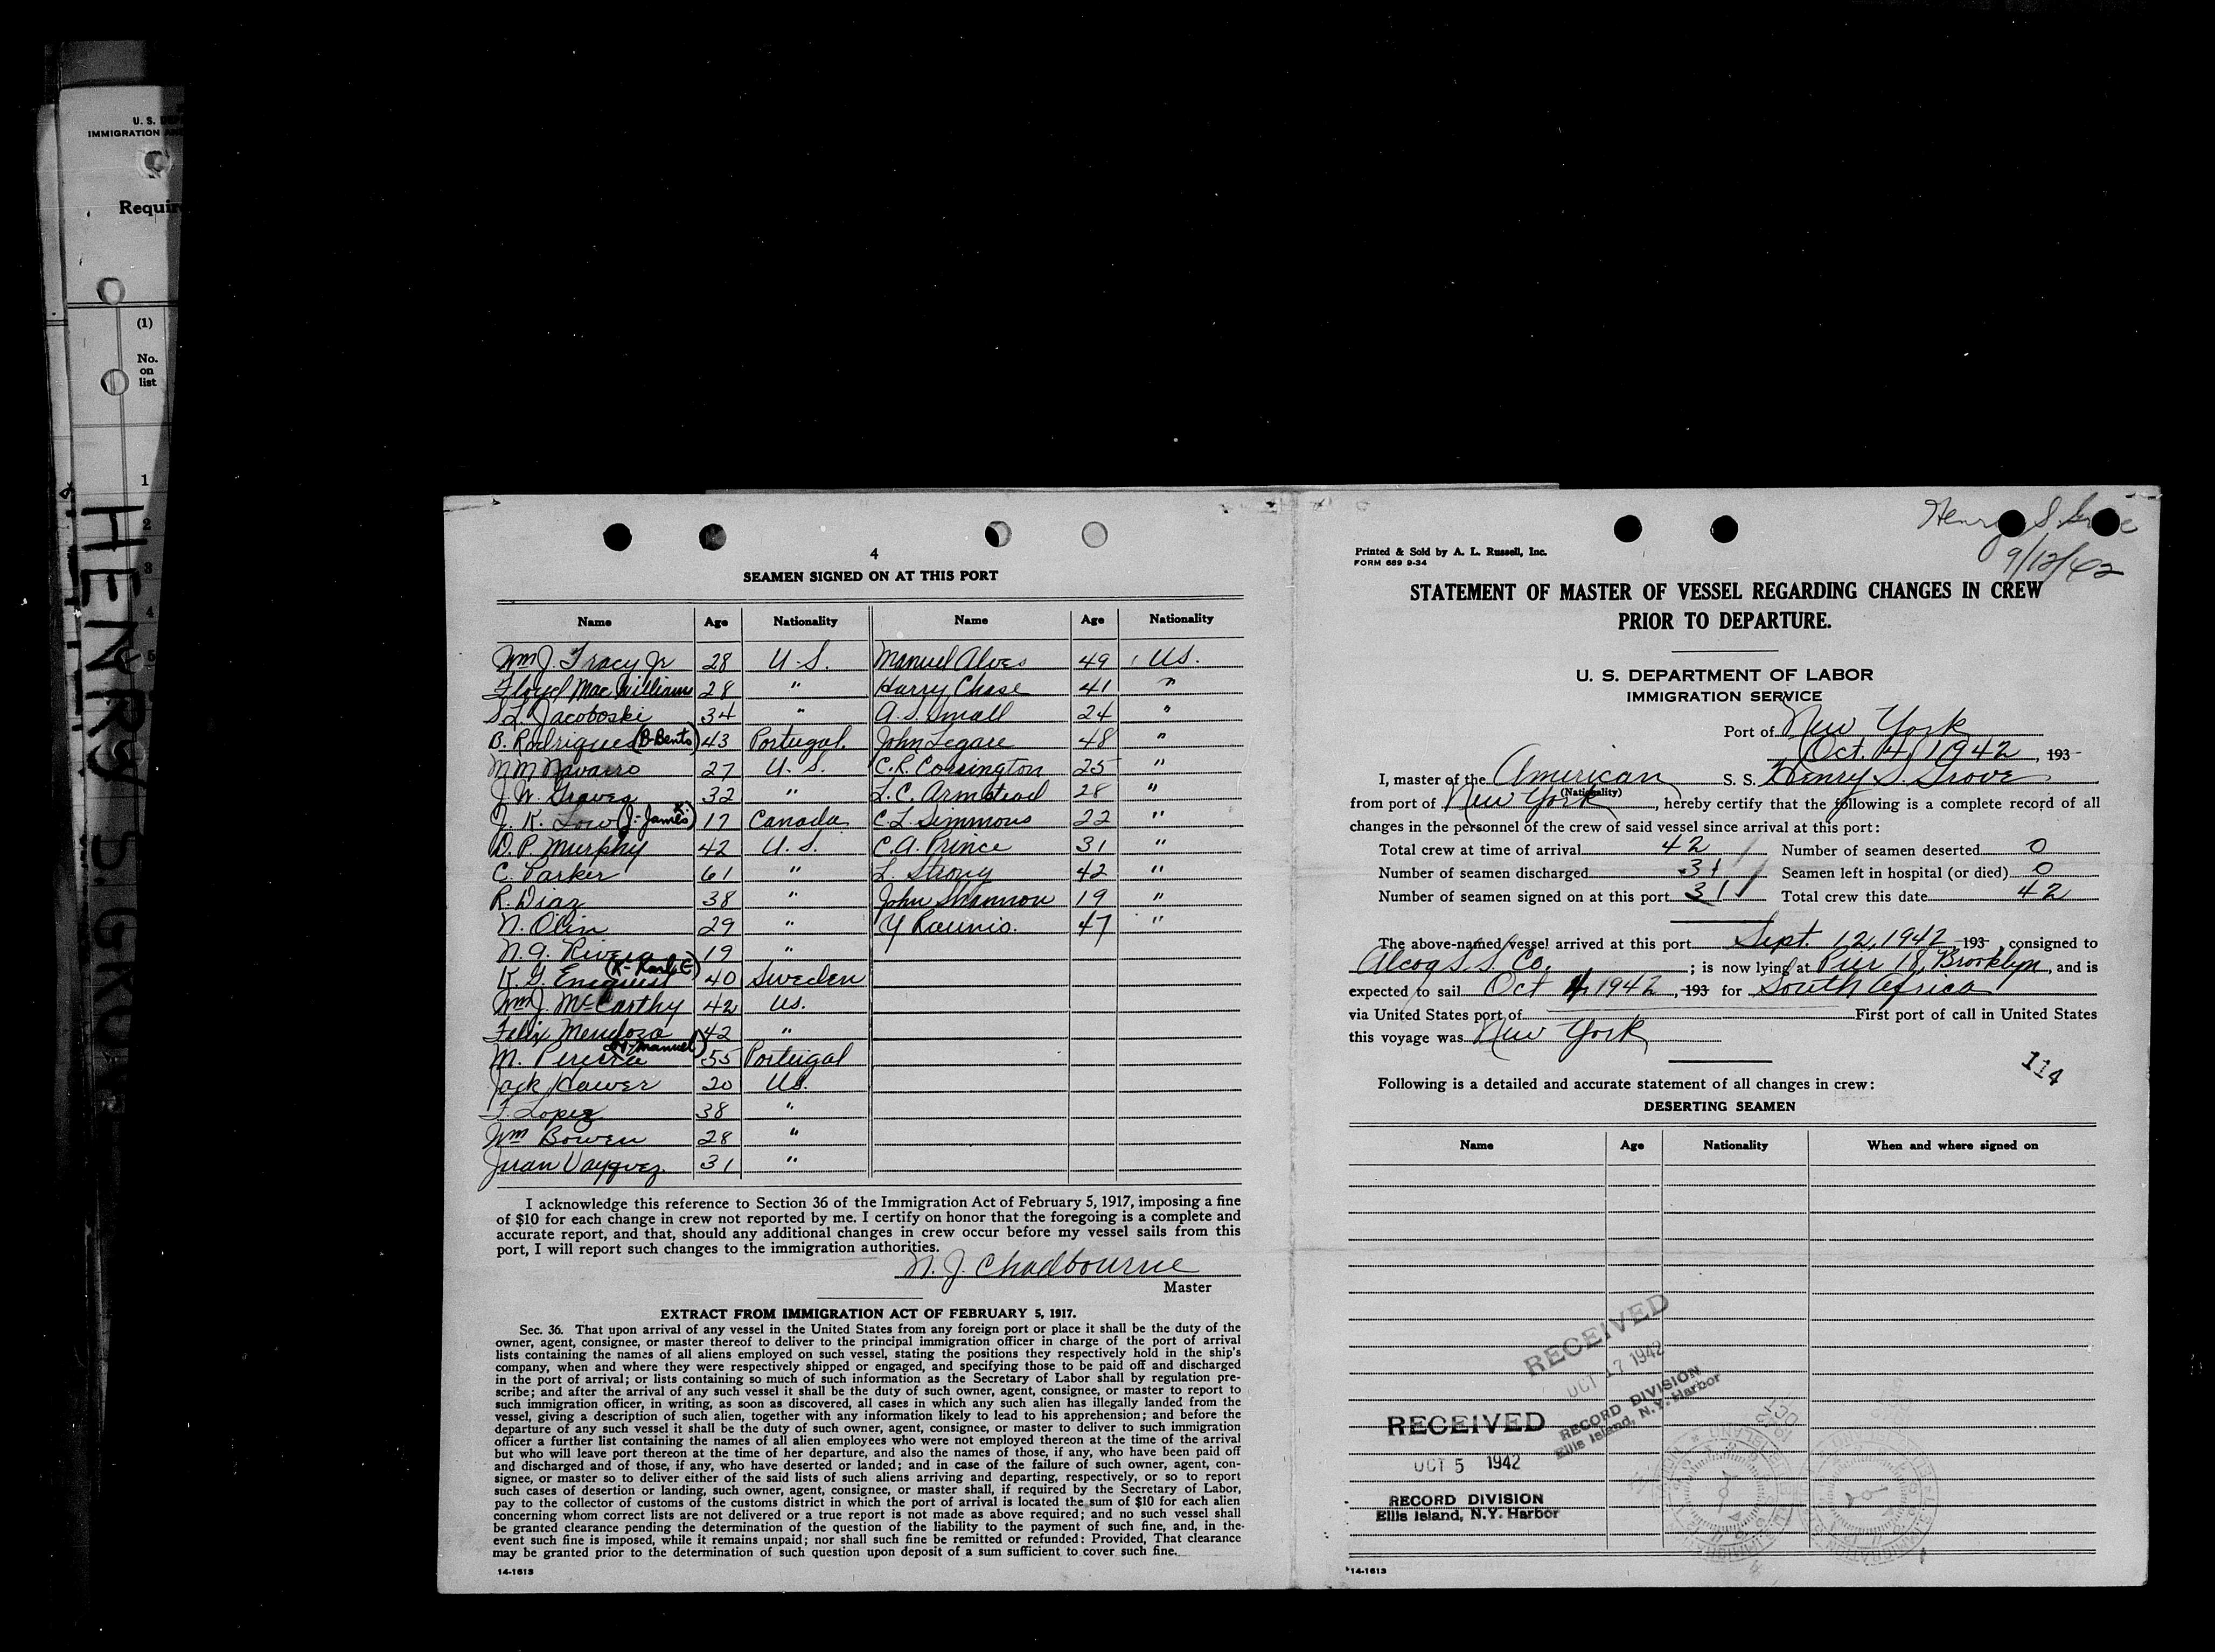 U. S. DEP
IMMIGRATION AN
Requir
(1)
No.
on
list
1
2
3
4
5
HENRY S. GROVE
4
SEAMEN SIGNED ON AT THIS PORT
Name Age Nationality Name Age Nationality
Wm J. Tracy Jr 28 U.S. Manuel Alves 49 US.
Floyd MacWilliams 28 " Harry Chase 41 "
S L. Jacoboski 34 " A. S. Small 24 "
B. Rodrigues (B-Bento) 43 Portugal. John Legare 48 "
M M Navarro 27 U. S. C. R. Cossington 25 "
J. W. Graves 32 " L. C. Armstead 28 "
J. K. Low (J-James K.) 17 Canada C. L. Simmons 22 "
D. P. Murphy 42 U. S. C. A. Prince 31 "
C. Parker 61 " L. Strong 42 "
R. Diaz 38 " John Shannon 19 "
N. Olin 29 " Y Raunio. 47 "
N. A. Rivera 19 "
K. G. Enequist (K-Karl G) 40 Sweden
Wm J. McCarthy 42 US.
Felix Mendoza 42 "
M. Pereira (M-Manuel) 55 Portugal
Jack Hawer 20 US.
F. Lopez 38 "
Wm Bowen 28 "
Juan Vayquez. 31 "
I acknowledge this reference to Section 36 of the Immigration Act of February 5, 1917, imposing a fine
of $10 for each change in crew not reported by me. I certify on honor that the foregoing is a complete and
accurate report, and that, should any additional changes in crew occur before my vessel sails from this
port, I will report such changes to the immigration authorities.
N. J. Chadbourne
Master
EXTRACT FROM IMMIGRATION ACT OF FEBRUARY 5, 1917.
Sec. 36. That upon arrival of any vessel in the United States from any foreign port or place it shall be the duty of the
owner, agent, consignee, or master thereof to deliver to the principal immigration officer in charge of the port of arrival
lists containing the names of all aliens employed on such vessel, stating the positions they respectively hold in the ship's
company, when and where they were respectively shipped or engaged, and specifying those to be paid off and discharged
in the port of arrival; or lists containing so much of such information as the Secretary of Labor shall by regulation pre-
scribe; and after the arrival of any such vessel it shall be the duty of such owner, agent, consignee, or master to report to
such immigration officer, in writing, as soon as discovered, all cases in which any such alien has illegally landed from the
vessel, giving a description of such alien, together with any information likely to lead to his apprehension; and before the
departure of any such vessel it shall be the duty of such owner, agent, consignee, or master to deliver to such immigration
officer a further list containing the names of all alien employees who were not employed thereon at the time of the arrival
but who will leave port thereon at the time of her departure, and also the names of those, if any, who have been paid off
and discharged and of those, if any, who have deserted or landed; and in case of the failure of such owner, agent, con-
signee, or master so to deliver either of the said lists of such aliens arriving and departing, respectively, or so to report
such cases of desertion or landing, such owner, agent, consignee, or master shall, if required by the Secretary of Labor,
pay to the collector of customs of the customs district in which the port of arrival is located the sum of $10 for each alien
concerning whom correct lists are not delivered or a true report is not made as above required; and no such vessel shall
be granted clearance pending the determination of the question of the liability to the payment of such fine, and, in the
event such fine is imposed, while it remains unpaid; nor shall such fine be remitted or refunded: Provided, That clearance
may be granted prior to the determination of such question upon deposit of a sum sufficient to cover such fine.
14-1613
Henry S. Grove
9/12/42
Printed & Sold by A. L. Russell, Inc.
FORM 689 9-34
STATEMENT OF MASTER OF VESSEL REGARDING CHANGES IN CREW
PRIOR TO DEPARTURE.
U. S. DEPARTMENT OF LABOR
IMMIGRATION SERVICE
Port of New York
Oct. 4, 1942, 193
I, master of the American S. S. Henry S. Grove
(Nationality)
from port of New York, hereby certify that the following is a complete record of all
changes in the personnel of the crew of said vessel since arrival at this port:
Total crew at time of arrival 42 Number of seamen deserted 0
Number of seamen discharged 31 Seamen left in hospital (or died) 0
Number of seamen signed on at this port 31 Total crew this date 42
The above-named vessel arrived at this port Sept. 12, 1942, 193 , consigned to
Alcoa S. S. Co. ; is now lying at Pier 18, Brooklyn, and is
expected to sail Oct 4, 1942, 193 for South Africa
via United States port of First port of call in United States
this voyage was New York
114
Following is a detailed and accurate statement of all changes in crew:
DESERTING SEAMEN
Name Age Nationality When and where signed on
RECEIVED
OCT 17 1942
RECORD DIVISION
Ellis Island, N.Y. Harbor
RECEIVED
OCT 5 1942
RECORD DIVISION
Ellis Island, N.Y. Harbor
14-1613